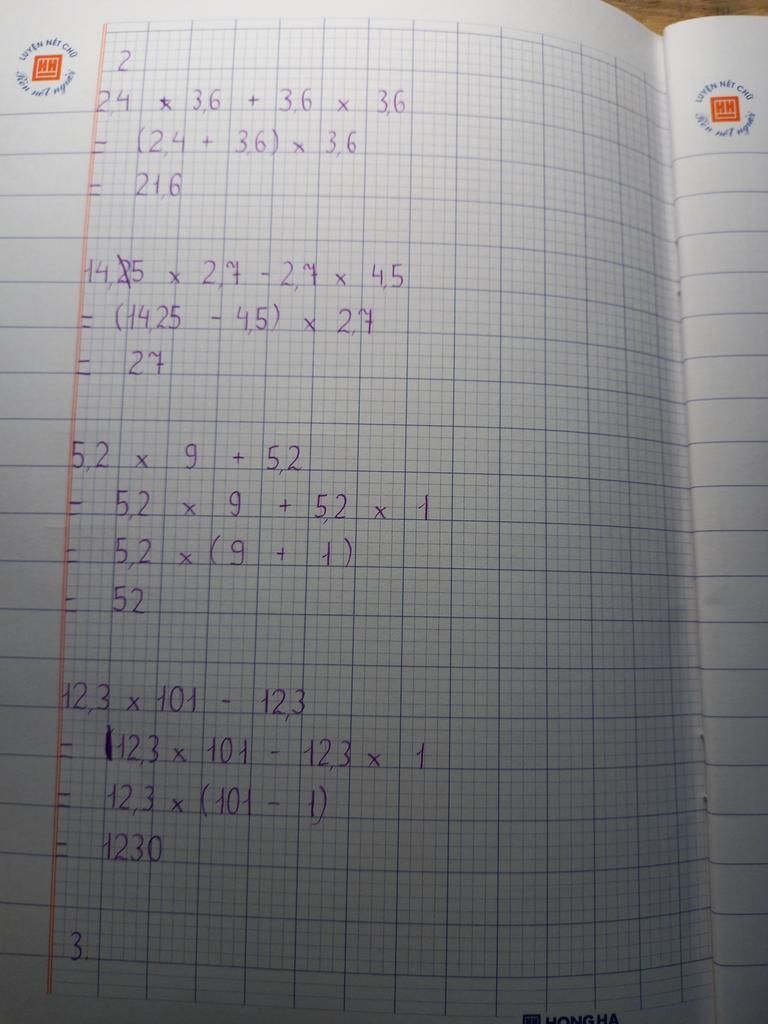 LUYỆN NÉT CHỮ
HH
Rèn nết người
LUYỆN NÉT CHỮ
HH
Rèn nết người
2
2,4 × 3,6 + 3,6 × 3,6
= (2,4 + 3,6) × 3,6
= 21,6
14,25 × 2,7 - 2,7 × 4,5
= (14,25 - 4,5) × 2,7
= 27
5,2 × 9 + 5,2
= 5,2 × 9 + 5,2 × 1
= 5,2 × (9 + 1)
= 52
12,3 × 101 - 12,3
= 12,3 × 101 - 12,3 × 1
= 12,3 × (101 - 1)
= 1230
3.
HH HONG HA